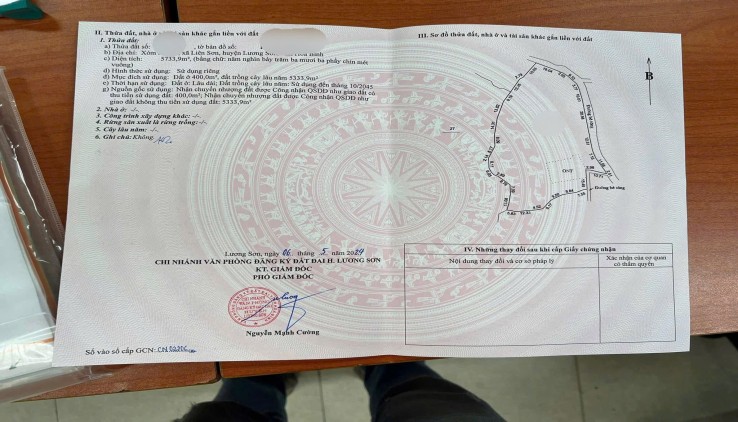 II. Thửa đất, nhà ở và tài sản khác gắn liền với đất
1. Thửa đất:
a) Thửa đất số: tờ bản đồ số:
b) Địa chỉ: Xóm xã Liên Sơn, huyện Lương Sơn,
c) Diện tích: 5733,9m², (bằng chữ: năm nghìn bảy trăm ba mươi ba phẩy chín mét
vuông)
d) Hình thức sử dụng: Sử dụng riêng
đ) Mục đích sử dụng: Đất ở 400,0m², đất trồng cây lâu năm 5333,9m²
e) Thời hạn sử dụng: Đất ở: Lâu dài; Đất trồng cây lâu năm: Sử dụng đến tháng 10/2045
g) Nguồn gốc sử dụng: Nhận chuyển nhượng đất được Công nhận QSDĐ như giao đất có
thu tiền sử dụng đất: 400,0m²; Nhận chuyển nhượng đất được Công nhận QSDĐ như
giao đất không thu tiền sử dụng đất: 5333,9m²
2. Nhà ở: -/-
3. Công trình xây dựng khác: -/-
4. Rừng sản xuất là rừng trồng: -/-
5. Cây lâu năm: -/-
6. Ghi chú: Không.
Lương Sơn, ngày 06 tháng 5 năm 2024
CHI NHÁNH VĂN PHÒNG ĐĂNG KÝ ĐẤT ĐAI H. LƯƠNG SƠN
KT. GIÁM ĐỐC
PHÓ GIÁM ĐỐC
Nguyễn Mạnh Cường
Số vào sổ cấp GCN:
III. Sơ đồ thửa đất, nhà ở và tài sản khác gắn liền với đất
B
27
Đường bê tông
IV. Những thay đổi sau khi cấp Giấy chứng nhận
Nội dung thay đổi và cơ sở pháp lý
Xác nhận của cơ quan
có thẩm quyền